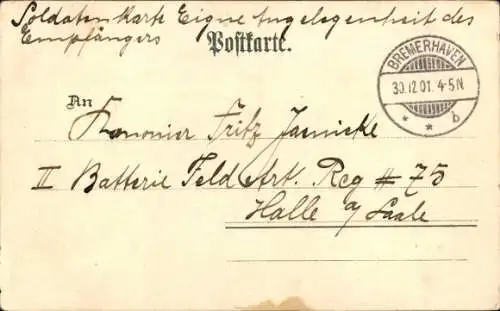 Soldatenkarte Eigne Angelegenheit des
Empfängers
Postkarte.
BREMERHAVEN
30.12.01. 4-5N
* * b
An
Kanonier Fritz Jaenicke
II Batterie Feld Art. Reg # 75
Halle a/ Saale